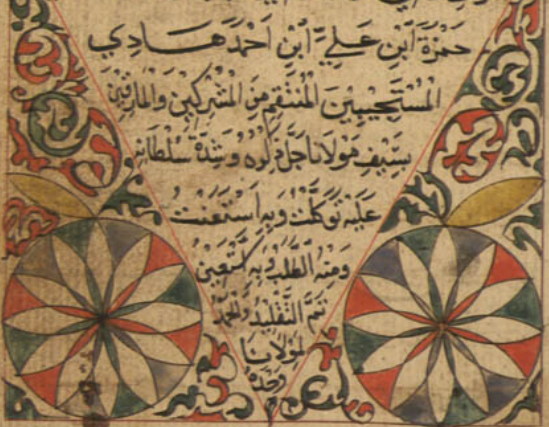 حمزة ابن علي ابن احمد هادي
المستجيبين المنتقم من المشركين والمارقين
بسيف مولانا جل ذكره وشدة سلطانه
عليه توكلت وبه استعنت
ومنه الطلب وبه
تم التقليد والحمد
لمولانا
وحده